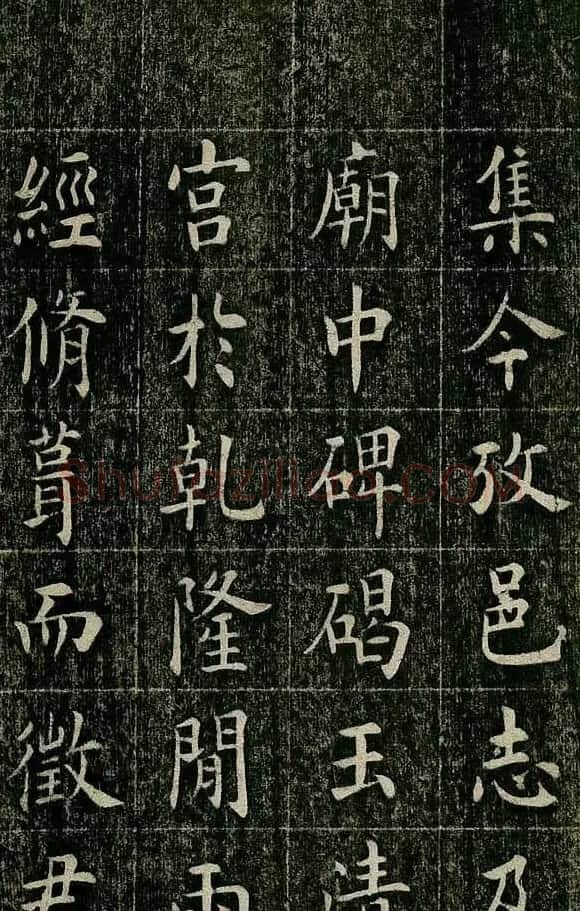 集今攷邑志及
廟中碑碣玉清
宫於乾隆閒兩
經脩葺而徵君
Shufaziliao.COM